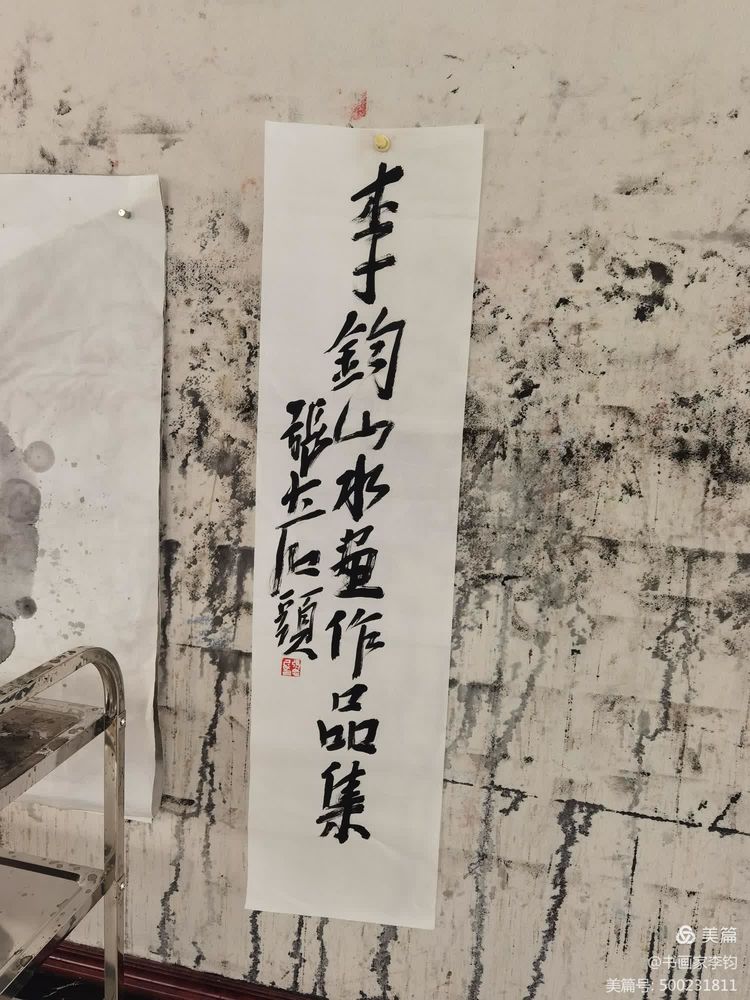 李鈞山水畫作品集
張大石頭
美篇
@书画家李钧
美篇号: 500231811